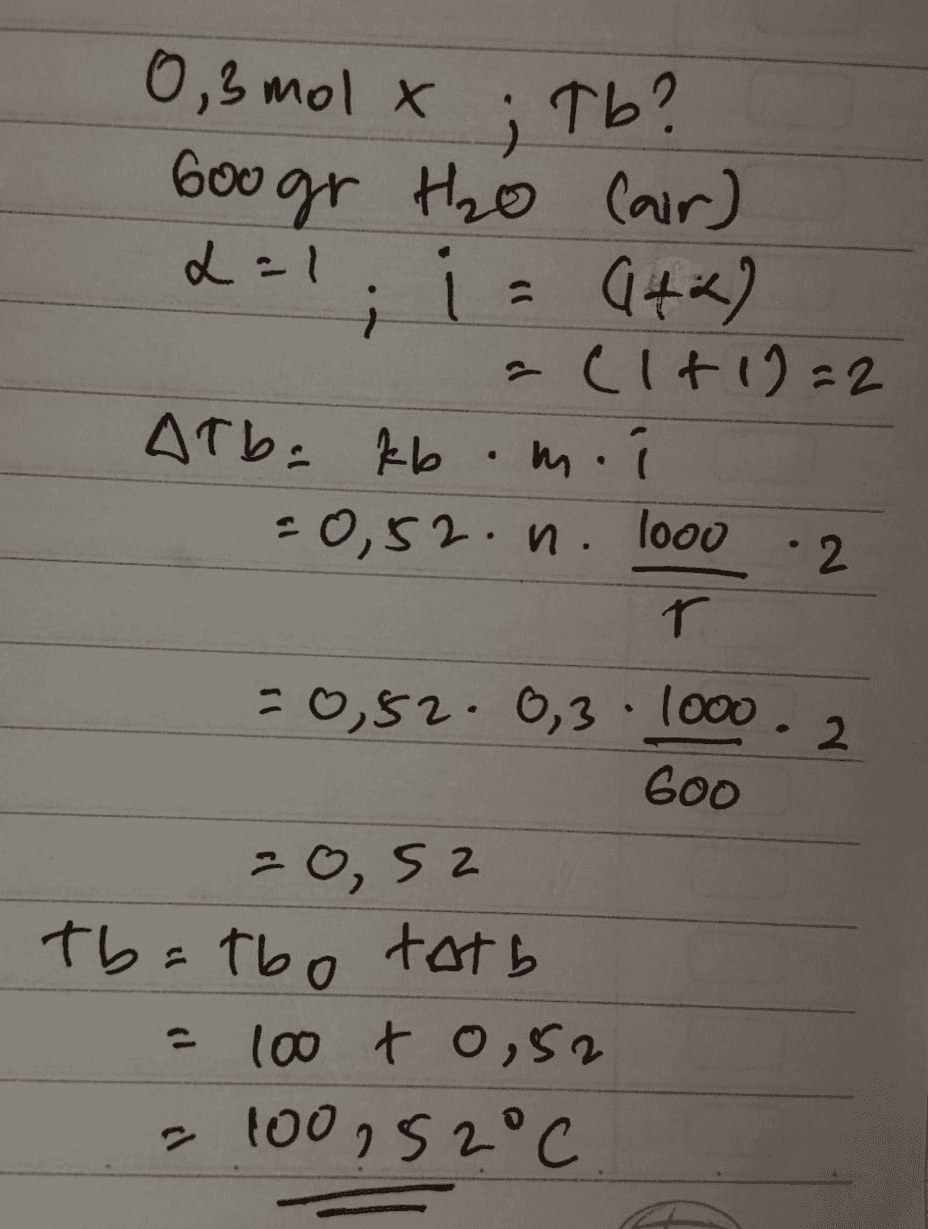 0,3 mol x ; Tb?
600 gr H₂O (air)
α = 1 ; i = (1+α)
= (1+1) = 2
ΔTb = kb . m . i
= 0,52 . n . 1000/r . 2
= 0,52 . 0,3 . 1000/600 . 2
= 0,52
tb = tbo + Δtb
= 100 + 0,52
= 100,52°C